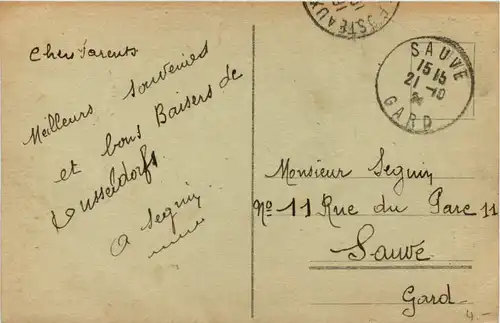 Chers Parents
Meilleurs Souvenirs
et bons Baisers de
Dusseldorfs
A Seguin
POSTE AUX
SAUVE
15 15
21 -10
GARD
Monsieur Seguin
No 11 Rue du Parc 11
Sauve
Gard
4.-